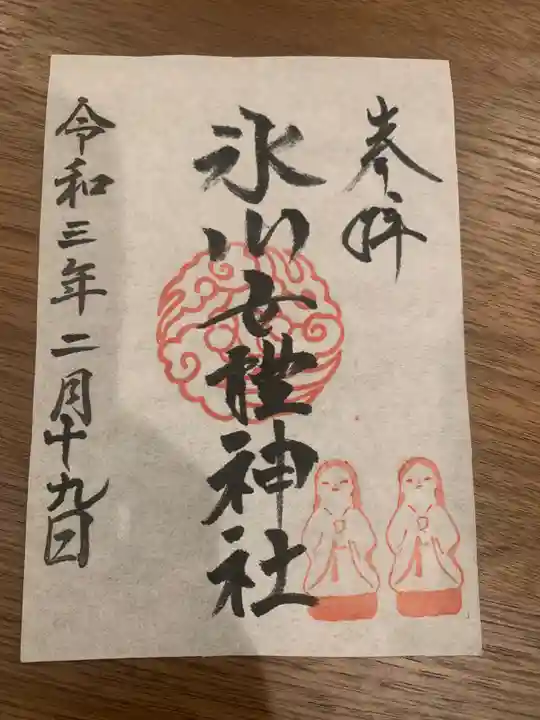 奉拝
氷川女體神社
令和三年二月十九日